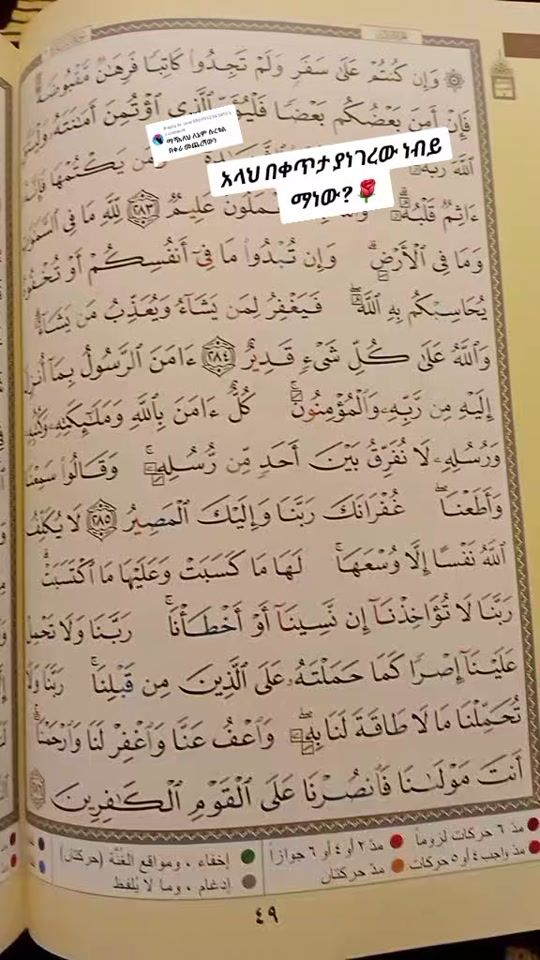 وَإِن كُنتُمْ عَلَىٰ سَفَرٍ وَلَمْ تَجِدُوا۟ كَاتِبًا فَرِهَـٰنٌ مَّقْبُوضَةٌ
فَإِنْ أَمِنَ بَعْضُكُم بَعْضًا فَلْيُؤَدِّ ٱلَّذِى ٱؤْتُمِنَ أَمَـٰنَتَهُۥ
ማሻአላህ ለኔም ሱረቱል
በቀራ
አላህ በቀጥታ ያነገረው ነብይ
ማነው?🌹
ٱللَّهَ رَبَّهُۥ يَكْتُمْهَا
ءَاثِمٌ قَلْبُهُۥ عَلِيمٌ ٢٨٣ لِّلَّهِ مَا فِى
وَمَا فِى ٱلْأَرْضِ وَإِن تُبْدُوا۟ مَا فِىٓ أَنفُسِكُمْ أَوْ
يُحَاسِبْكُم بِهِ ٱللَّهُ فَيَغْفِرُ لِمَن يَشَآءُ وَيُعَذِّبُ مَن يَشَآءُ
وَٱللَّهُ عَلَىٰ كُلِّ شَىْءٍ قَدِيرٌ ٢٨٤ ءَامَنَ ٱلرَّسُولُ بِمَآ
إِلَيْهِ مِن رَّبِّهِۦ وَٱلْمُؤْمِنُونَ كُلٌّ ءَامَنَ بِٱللَّهِ وَمَلَـٰٓئِكَتِهِۦ
وَرُسُلِهِۦ لَا نُفَرِّقُ بَيْنَ أَحَدٍ مِّن رُّسُلِهِۦ وَقَالُوا۟
وَأَطَعْنَا غُفْرَانَكَ رَبَّنَا وَإِلَيْكَ ٱلْمَصِيرُ ٢٨٥ لَا يُكَلِّفُ
ٱللَّهُ نَفْسًا إِلَّا وُسْعَهَا لَهَا مَا كَسَبَتْ وَعَلَيْهَا مَا ٱكْتَسَبَتْ
رَبَّنَا لَا تُؤَاخِذْنَآ إِن نَّسِينَآ أَوْ أَخْطَأْنَا رَبَّنَا وَلَا تَحْمِلْ
عَلَيْنَآ إِصْرًا كَمَا حَمَلْتَهُۥ عَلَى ٱلَّذِينَ مِن قَبْلِنَا رَبَّنَا وَلَا
تُحَمِّلْنَا مَا لَا طَاقَةَ لَنَا بِهِۦ وَٱعْفُ عَنَّا وَٱغْفِرْ لَنَا وَٱرْحَمْنَآ
أَنتَ مَوْلَىٰنَا فَٱنصُرْنَا عَلَى ٱلْقَوْمِ ٱلْكَـٰفِرِينَ ٢٨٦
مدّ ٦ حركات لزوماً مدّ ٢ أو ٤ أو ٦ جوازاً إخفاء ، ومواقع الغُنَّة (حركتان)
مدّ واجب ٤ أو ٥ حركات مدّ حركتان إدغام ، وما لا يُلفظ
٤٩